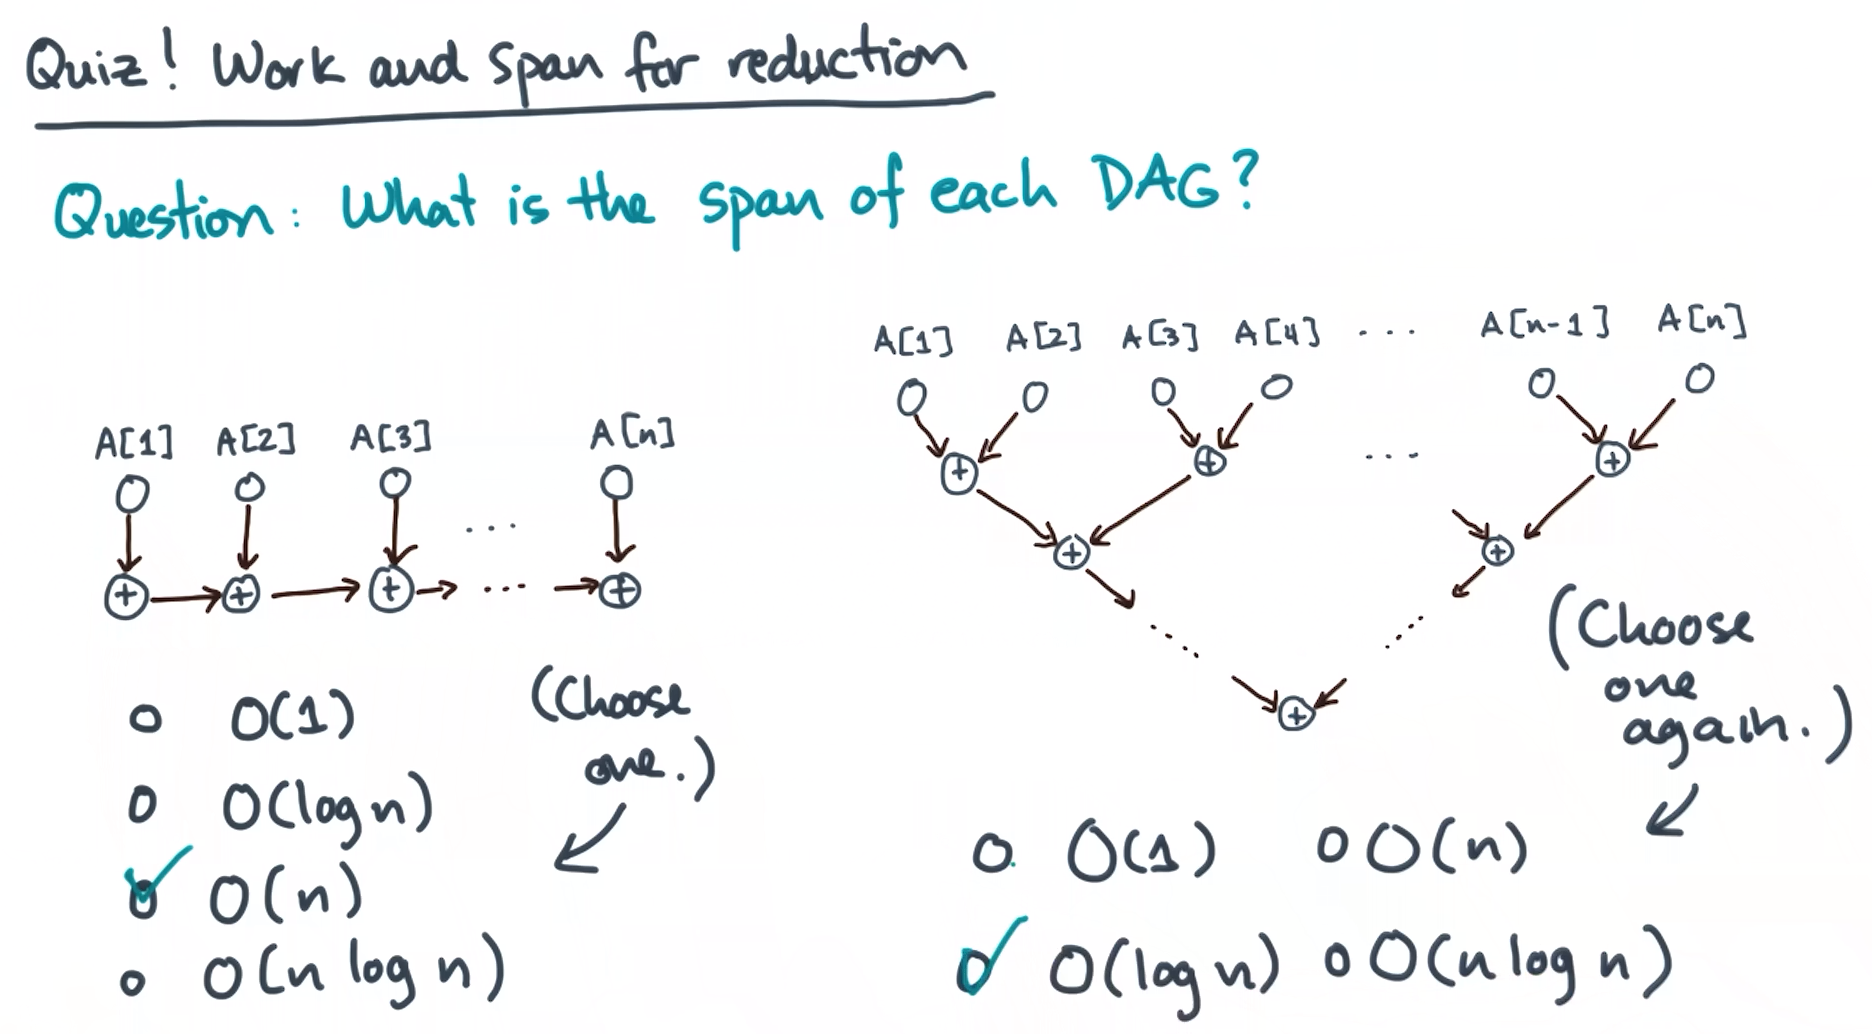 Quiz! Work and span for reduction
Question: What is the span of each DAG?
A[1] A[2] A[3] A[n]
...
+ + + ... +
(Choose
one.)
O(1)
O(log n)
O(n)
O(n log n)
A[1] A[2] A[3] A[4] ... A[n-1] A[n]
+ + ... +
+ +
+
(Choose
one
again.)
O(1) O(n)
O(log n) O(n log n)